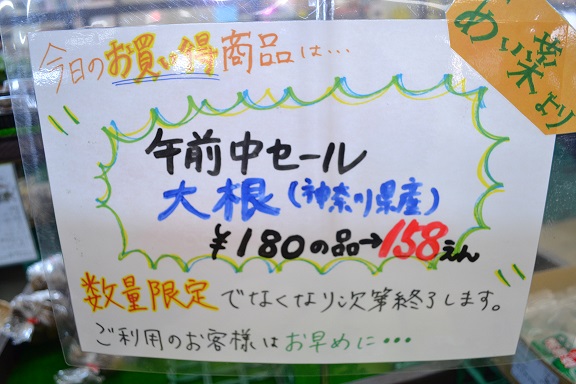 今日のお買い得商品は…
午前中セール
大根(神奈川県産)
¥180の品→158えん
数量限定でなくなり次第終了します。
ご利用のお客様はお早めに…